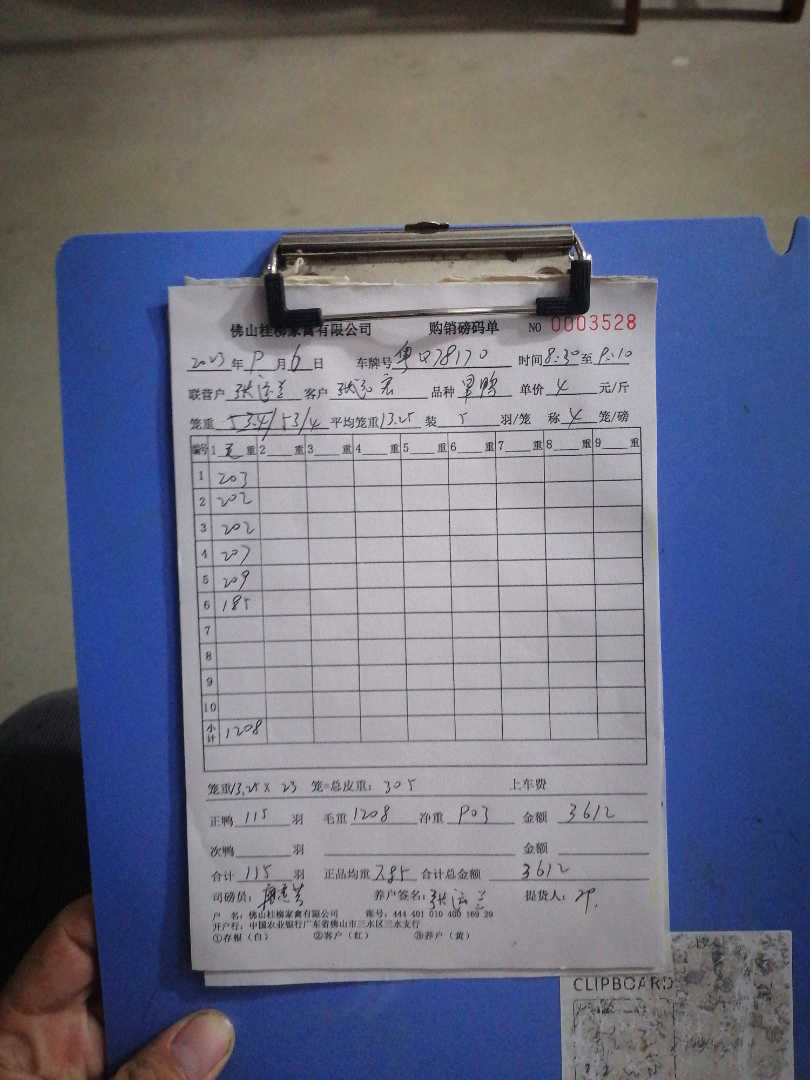 佛山桂柳家禽有限公司 购销磅码单 NO 0003528
2023年 9 月 6 日 车牌号 粤Q78170 时间 8:30 至 9:10
联营户 张 客户 张 宏 品种 单价 4 元/斤
笼重 53.4/53/4 平均笼重 13.25 装 5 羽/笼 称 4 笼/磅
编号 1 毛 重 2 重 3 重 4 重 5 重 6 重 7 重 8 重 9 重
1 203
2 202
3 202
4 207
5 209
6 185
7
8
9
10
小计 1208
笼重 13.25 x 23 笼=总皮重: 305 上车费
正鸭 115 羽 毛重 1208 净重 903 金额 3612
次鸭 羽 金额
合计 115 羽 正品均重 7.85 合计总金额 3612
司磅员: 养户签名: 张 提货人:
户 名: 佛山桂柳家禽有限公司 账号: 444 401 010 400 169 29
开户行: 中国农业银行广东省佛山市三水区三水支行
①存根（白） ②客户（红） ③养户（黄）
CLIPBOARD